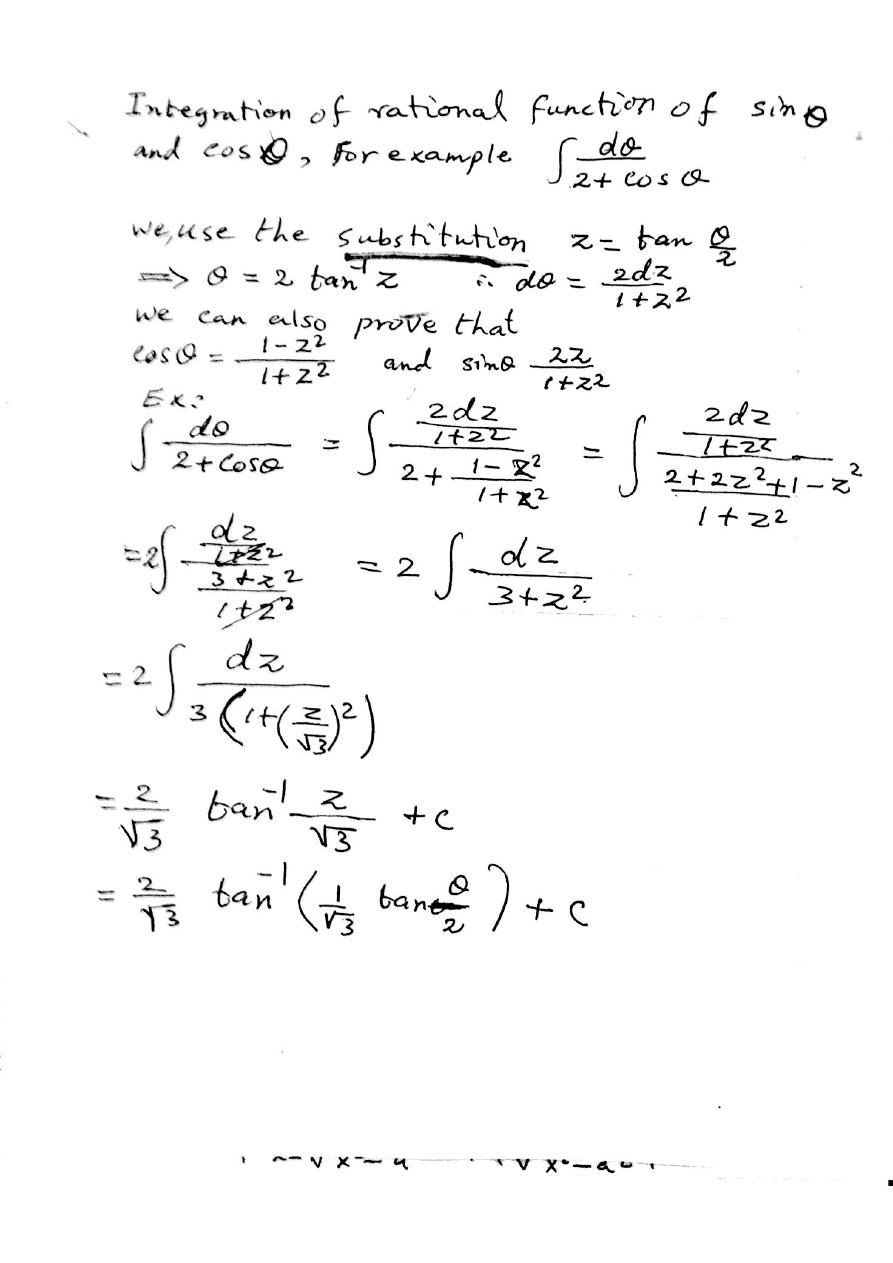 Integration of rational function of sin θ
and cos θ, for example ∫ dθ / (2 + cos θ)
we, use the substitution z = tan θ/2
⟹ θ = 2 tan⁻¹ z ∴ dθ = 2dz / (1+z²)
we can also prove that
cos θ = (1-z²) / (1+z²) and sin θ 2z / (1+z²)
Ex:
∫ dθ / (2+cos θ) = ∫ (2dz / (1+z²)) / (2 + (1-z²) / (1+z²)) = ∫ (2dz / (1+z²)) / ((2+2z²+1-z²) / (1+z²))
= 2∫ (dz / (1+z²)) / ((3+z²) / (1+z²)) = 2 ∫ dz / (3+z²)
= 2 ∫ dz / (3(1+(z/√3)²))
= 2/√3 tan⁻¹ z/√3 + c
= 2/√3 tan⁻¹ (1/√3 tan θ/2) + c